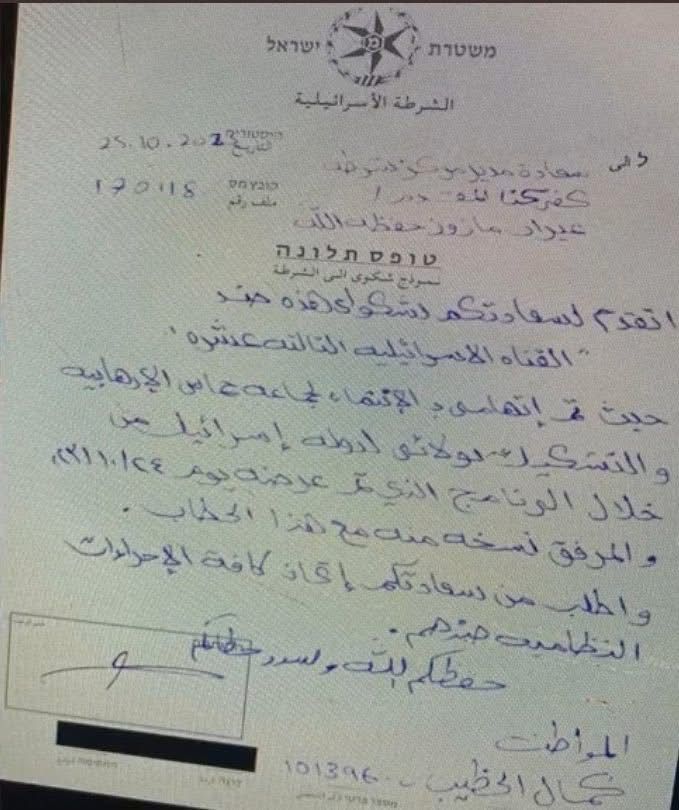 משטרת ישראל
الشرطة الأسرائيلية
היסטוריה
التاريخ 25.10.202
ملف رقم 170118
الى
سعادة مدير مركز شرطة
كفركنا المقدم /
ميراد مازوز حفظه الله
טופס תלונה
نموذج شكوى الى الشرطة
اتقدم لسعادتكم بشكواي هذه ضد
"القناه الاسرائيليه الثالثه عشره"
حيث تم إتهامي بـ الإنتماء لجماعة حماس الإرهابيه
والتشكيك بولائي لدولة إسرائيل من
خلال البرنامج الذي تم عرضه يوم
والمرفق نسخه منه مع هذا الخطاب .
واطلب من سعادتكم إتخاذ كافة الإجراءات
النظاميه ضدهم .
حفظكم الله وسدد خطاكم
المواطن
كمال الخطيب